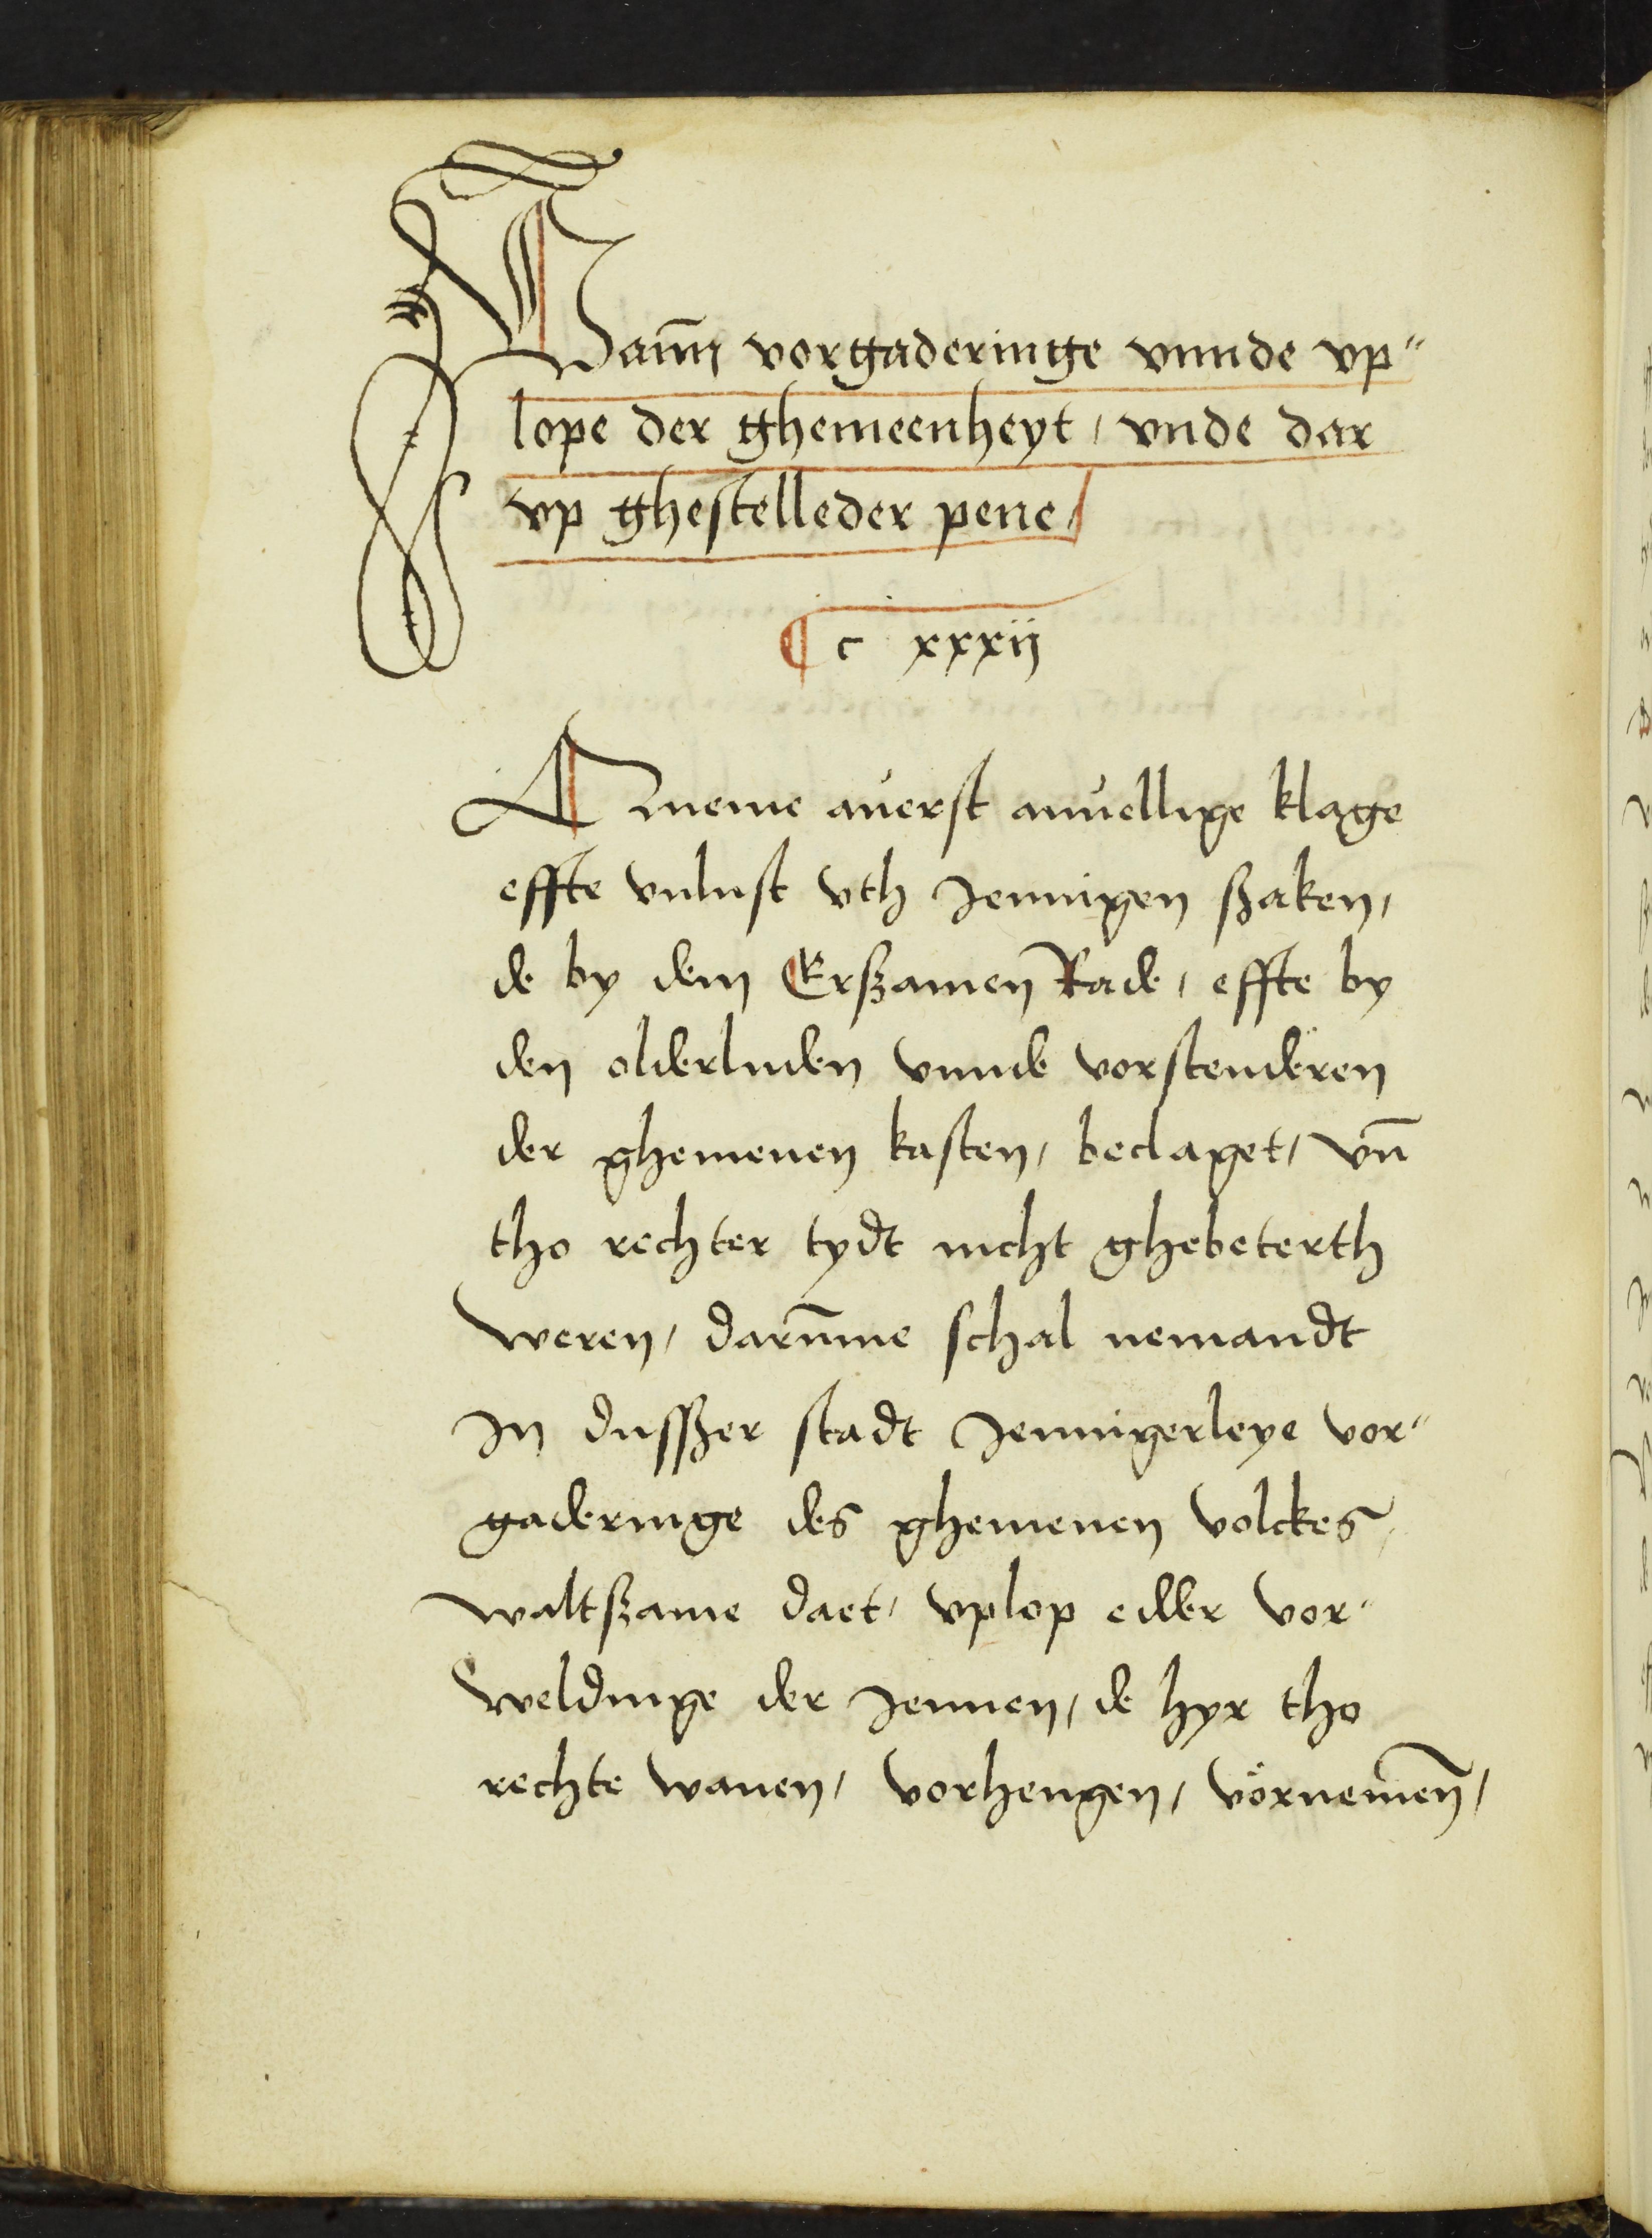 Vann vorgaderinge vnnde vp"
lope der ghemeenheyt / vnde dar
vp ghestelleder pene /
¶ c xxxij
Queme auerst anuellige klage
effte vnlust vth Jennigen szaken /
de by dem Erszamen Rade / effte by
den olderluden vnnde vorstenderen
der ghemenen kasten / beclaget / vn̄
tho rechter tydt nicht ghebeterth
weren / darum̄me schal nemandt
In dusszer stadt Jennigerleye vor"
gaderinge des ghemenen volckes /
waltszame daet / vplop edder vor"
weldinge der Jennen / de hyr tho
rechte wanen / vorhengen / vörnemen̄ /